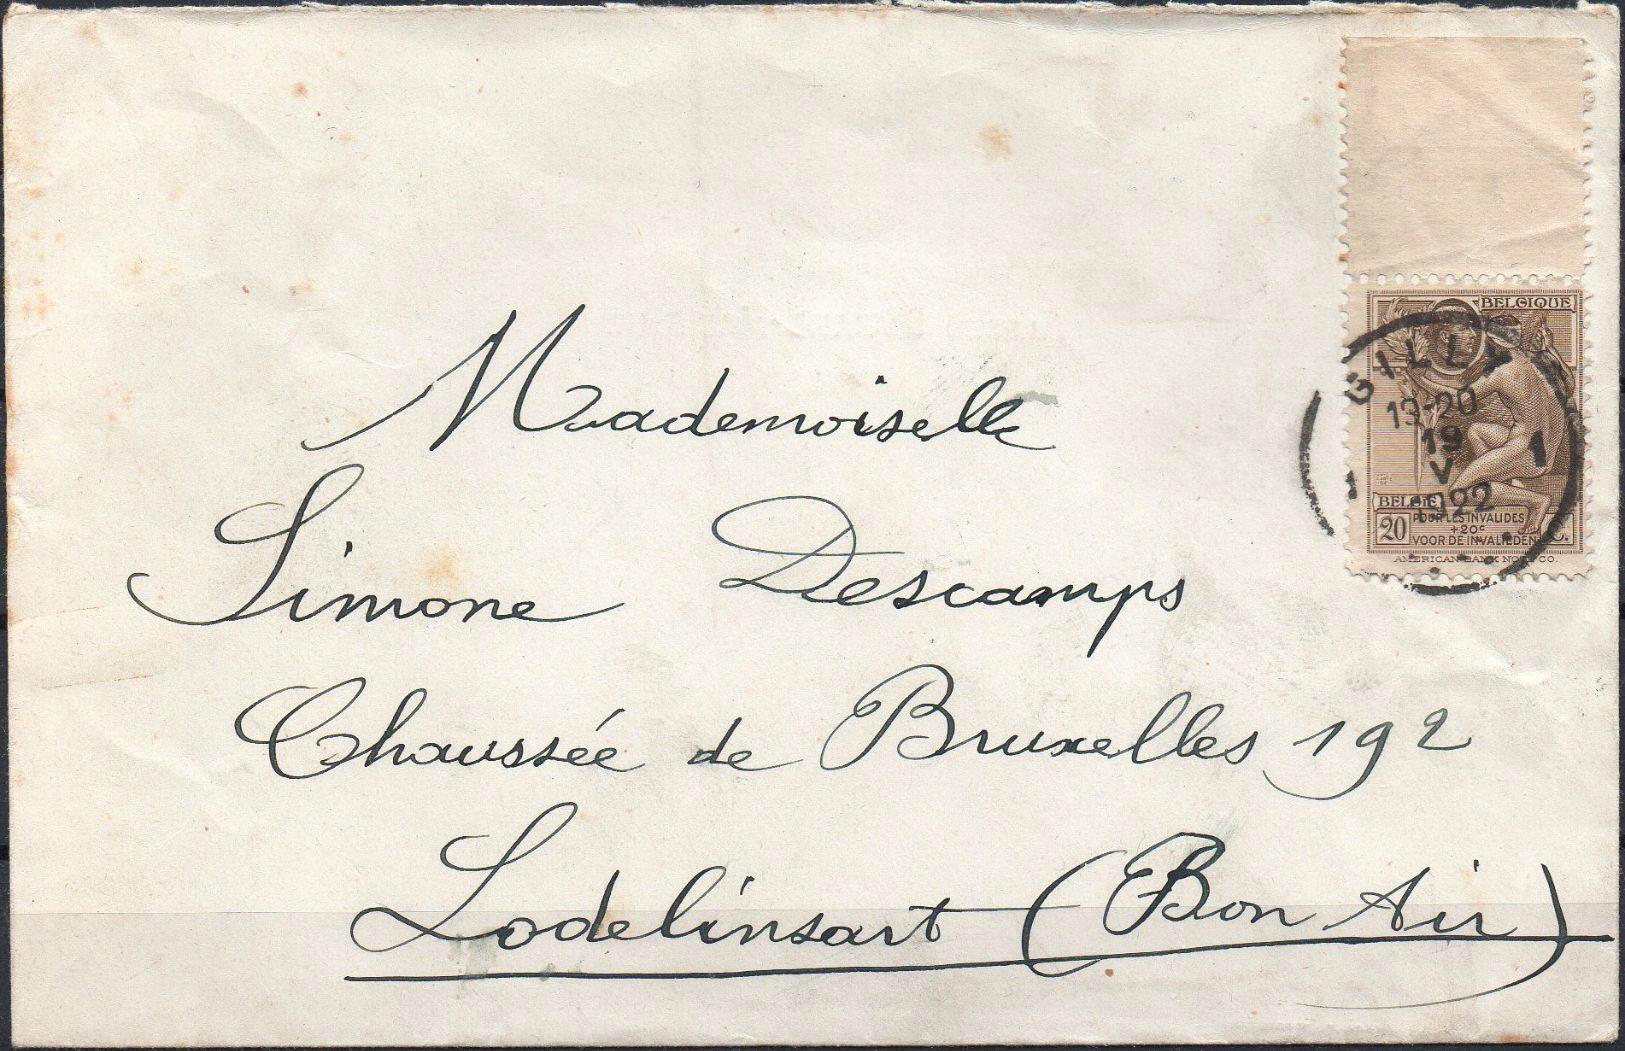 BELGIQUE
GILLY
19-20
19
V
1922
1 1
BELGIË
20 POUR LES INVALIDES
+20c
VOOR DE INVALIEDEN C.
AMERICAN BANK NOTE CO.
Mademoiselle
Simone Descamps
Chaussée de Bruxelles 192
Lodelinsart (Bon Air)